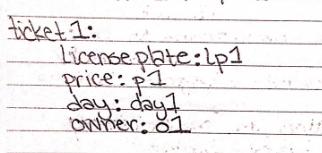 ticket 1:
License plate: lp1
price: p1
day: day1
owner: o1